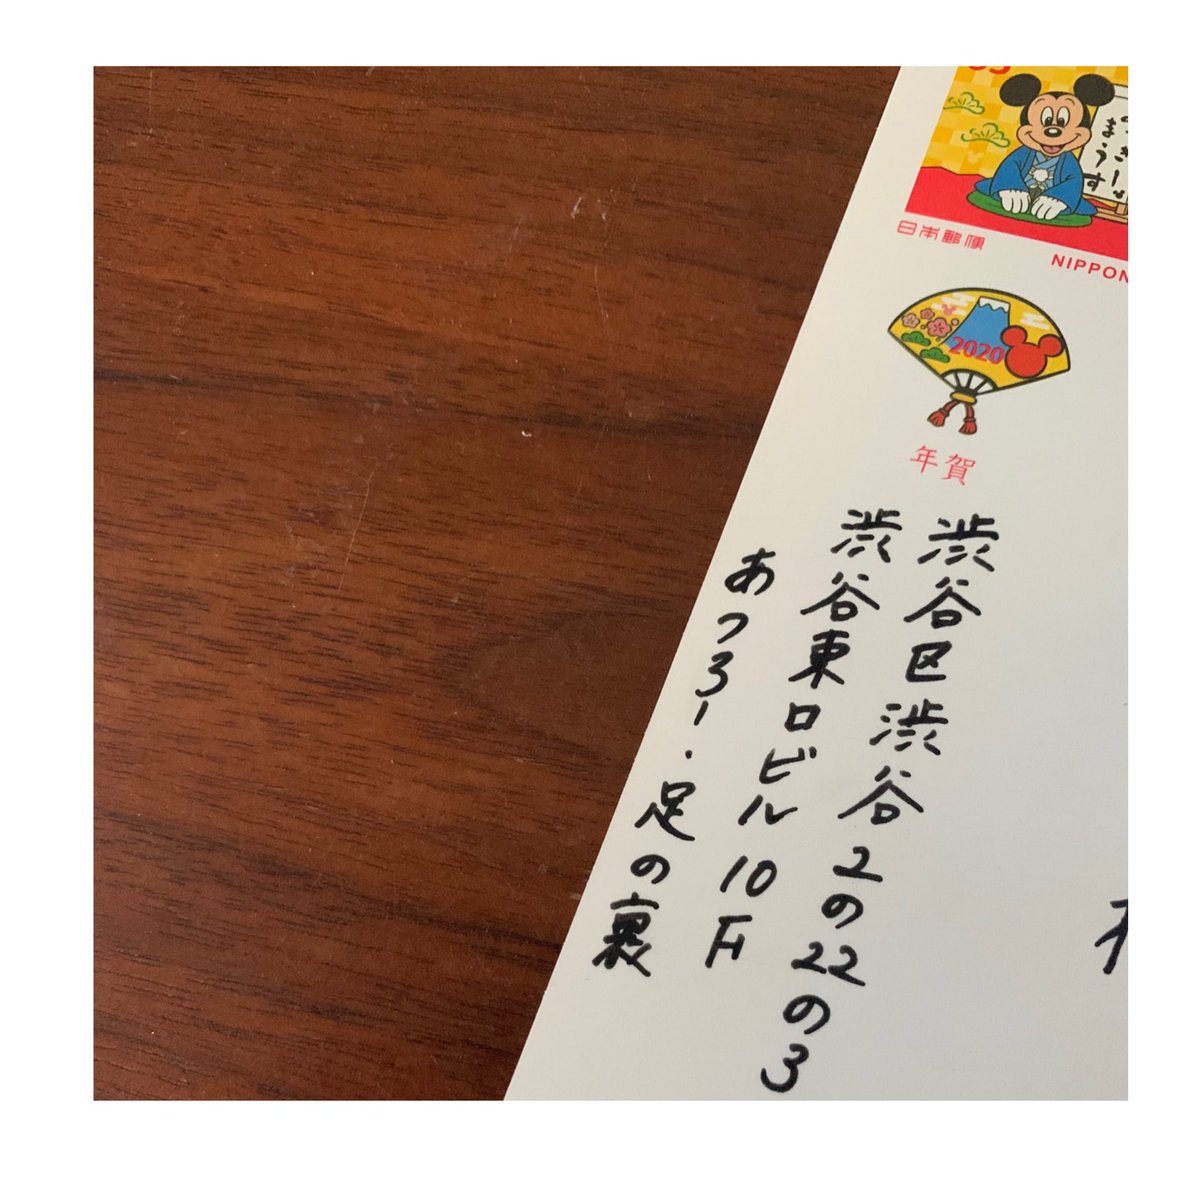 日本郵便
NIPPON
2020
年賀
渋谷区渋谷2の22の3
渋谷東口ビル10F
あつろー・足の裏